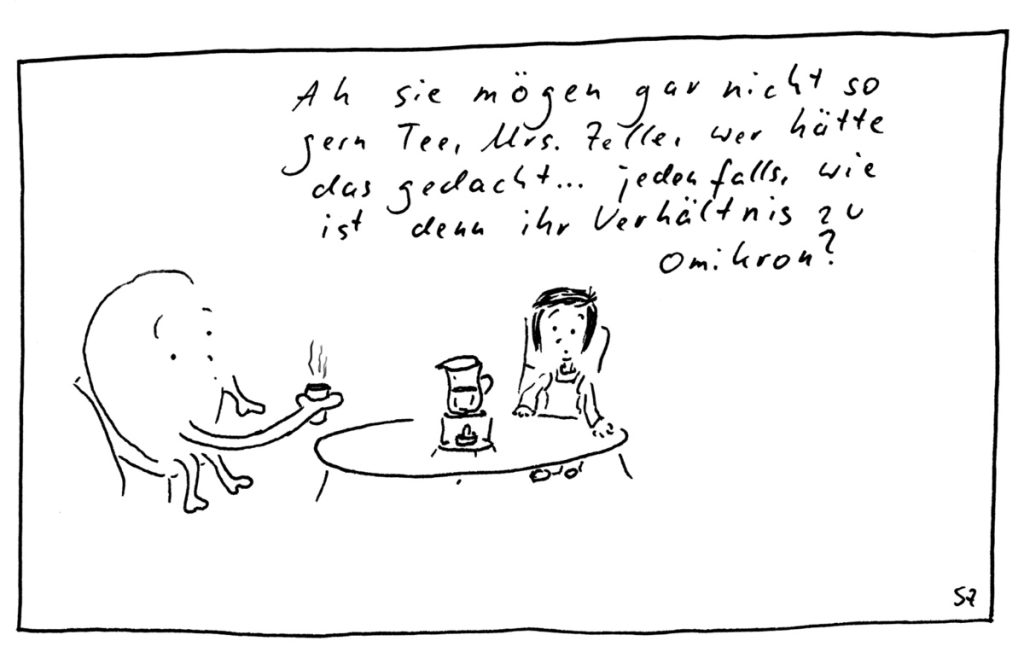 Ah sie mögen gar nicht so
gern Tee, Mrs. Zelle, wer hätte
das gedacht... jedenfalls, wie
ist denn ihr Verhältnis zu
Omikron?
SZ